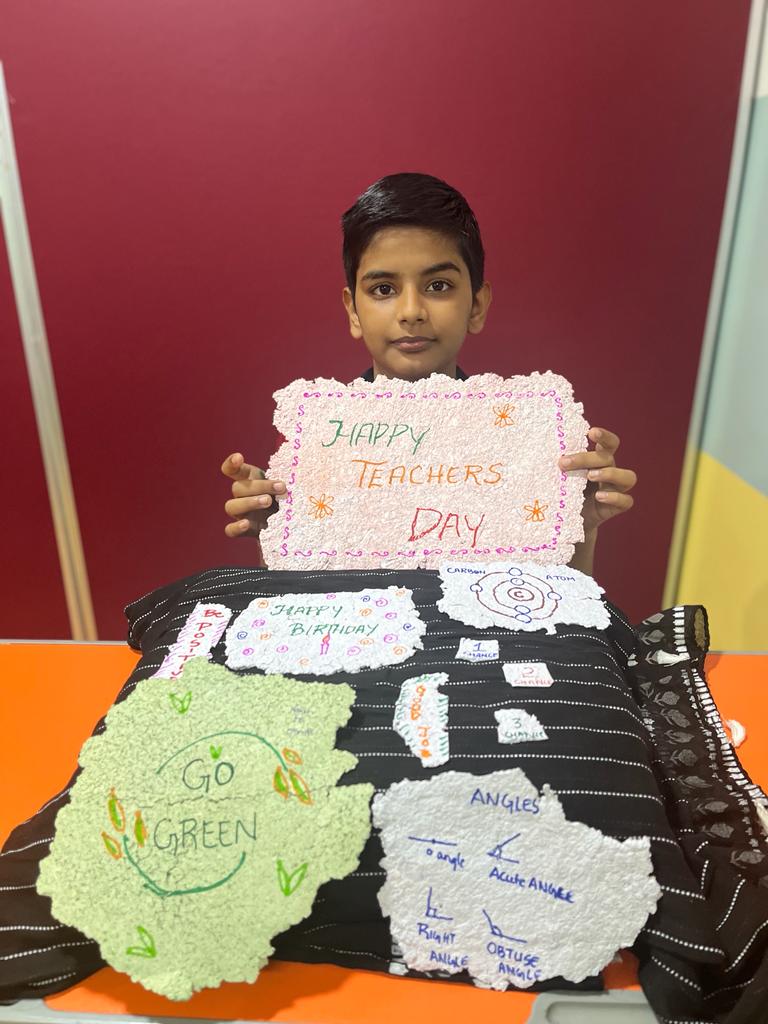 HAPPY
TEACHERS
DAY
CARBON ATOM
HAPPY
BIRTHDAY
Be POSITIV
1
CHANCE
2
CHANCE
3
CHANCE
GOOD JOB
GO
GREEN
ANGLES
0 angle
Acute ANGLE
RIGHT
ANGLE
OBTUSE
ANGLE